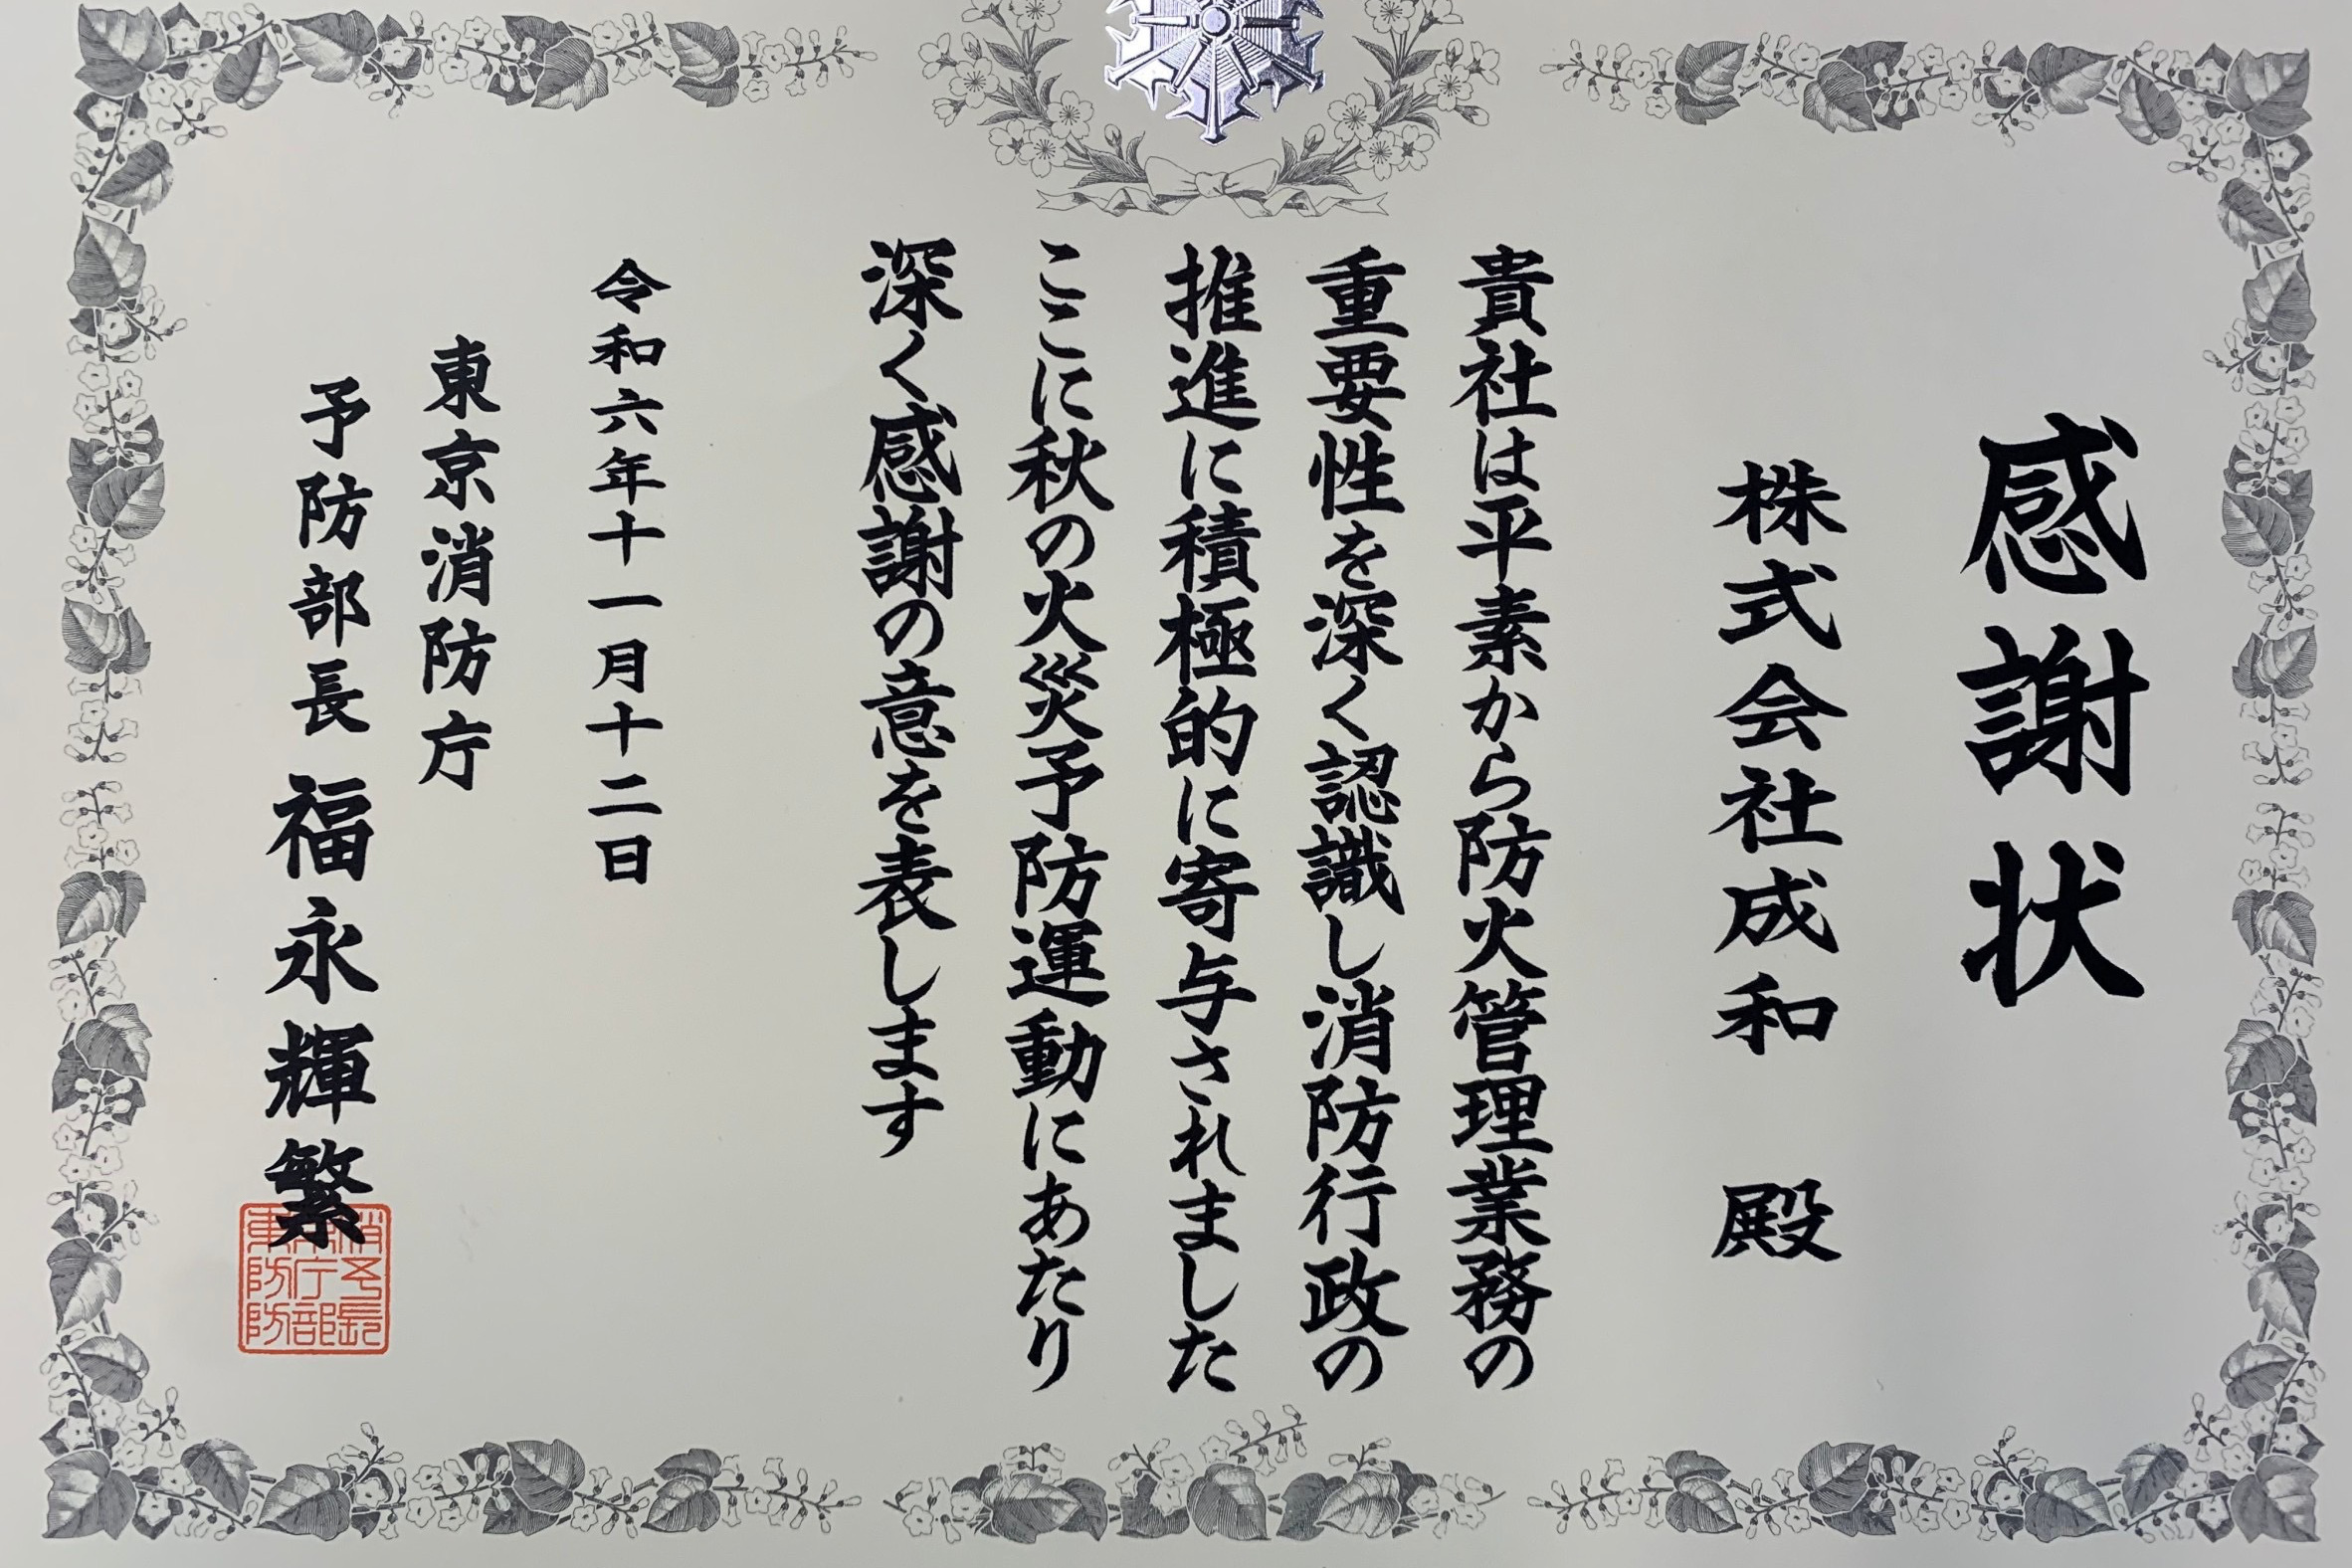 感謝状
株式会社成和 殿
貴社は平素から防火管理業務の
重要性を深く認識し消防行政の
推進に積極的に寄与されました
ここに秋の火災予防運動にあたり
深く感謝の意を表します
令和六年十一月十二日
東京消防庁
予防部長 福永輝繁